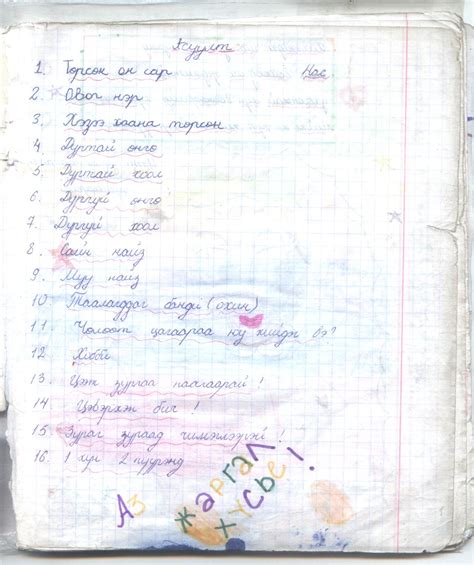 Асуулт
1. Төрсөн он сар Нас
2. Овог нэр
3. Хэзээ хаана төрсөн
4. Дуртай өнгө
5. Дуртай хоол
6. Дургүй өнгө
7. Дургүй хоол
8. Сайн найз
9. Муу найз
10. Таалагддаг банди (охин)
11. Чөлөөт цагаараа юу хийдэг вэ?
12. Хобби
13. Цээж зургаа наагаарай!
14. Цэвэрхэн бич!
15. Зураг зураад чимэглээрэй!
16. 1 хүн 2 нүүрэнд
Аз жаргал хүсье!